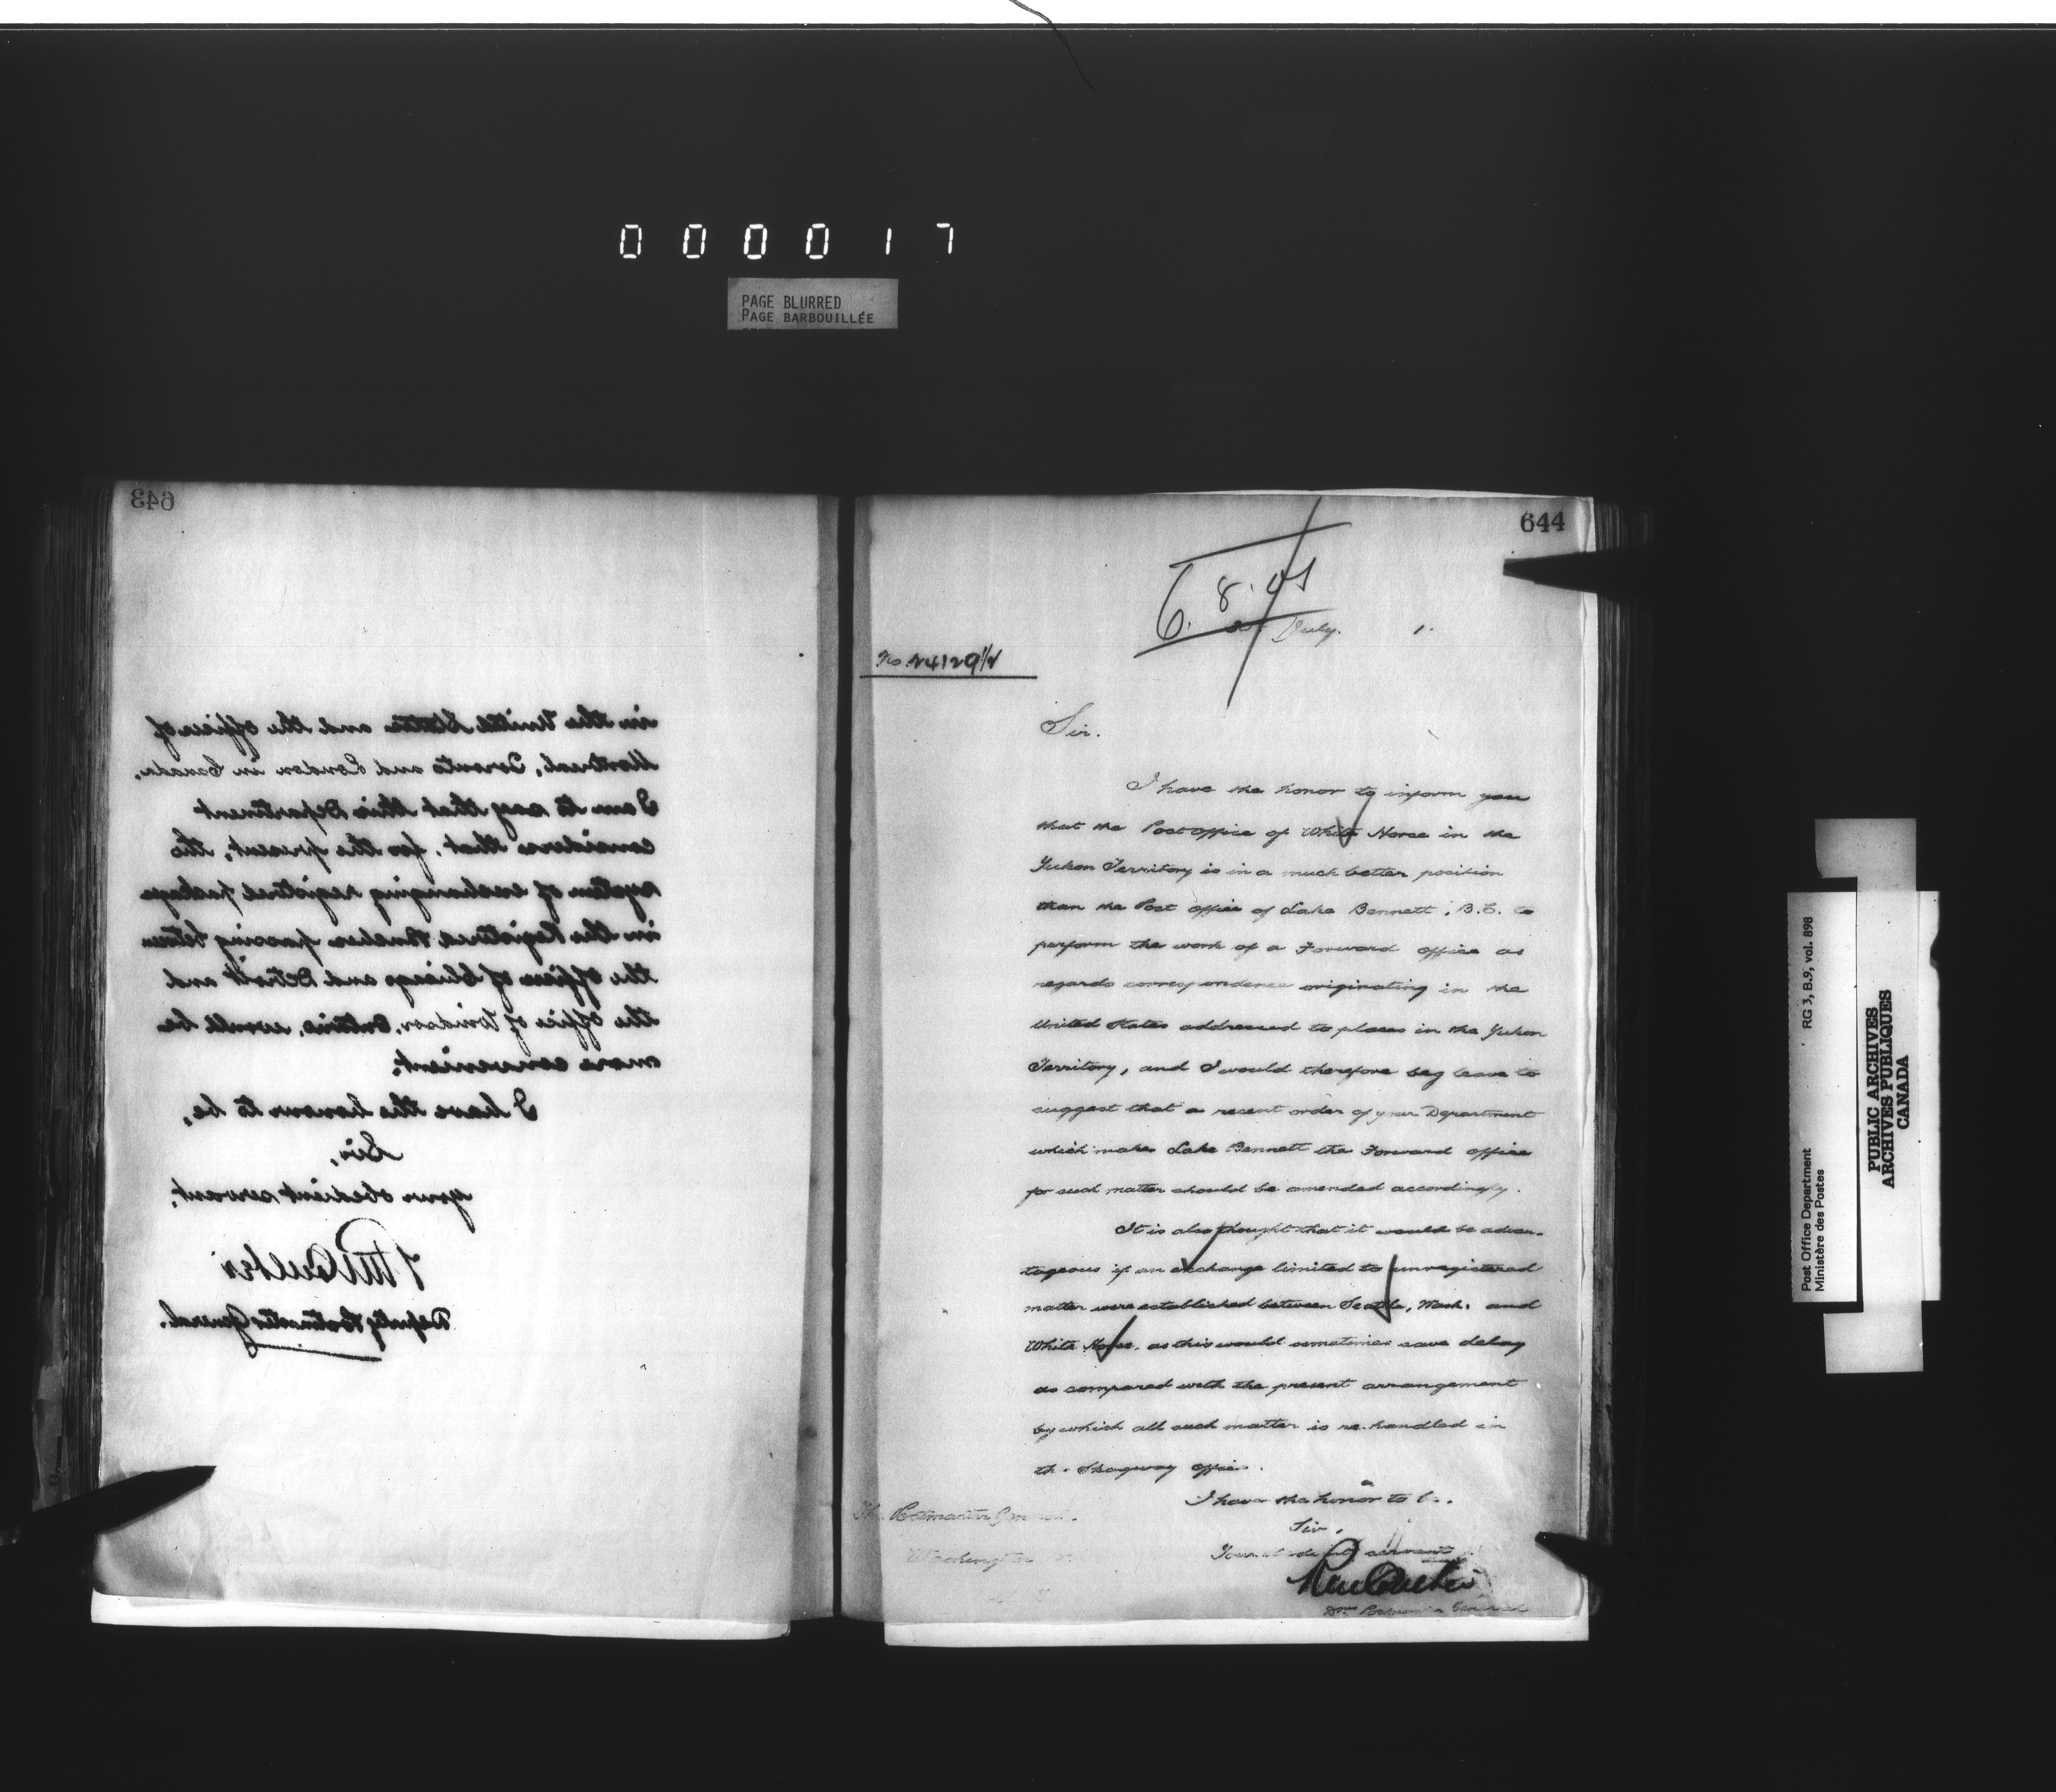 000017
PAGE BLURRED
PAGE BARBOUILLÉE
643
in the United States and the offices of
Montreal, Toronto and London in Canada.
I am to say that this Department
considers that, for the present, the
system of exchanging registered package
in the Registered Pouches passing between
the offices of Chicago and Detroit and
the office of Windsor, Ontario, would be
more convenient.
I have the honour to be,
Sir,
your obedient servant,
Deputy Postmaster General.
644
6. 8. 01
July. 1.
No. 24129½
Sir.
I have the honor to inform you
that the Post office of White Horse in the
Yukon Territory is in a much better position
than the Post office of Lake Bennett, B.C. to
perform the work of a Forward office as
regards correspondence originating in the
United States addressed to places in the Yukon
Territory, and I would therefore beg leave to
suggest that a recent order of your Department
which makes Lake Bennett the Forward office
for such matter should be amended accordingly.
It is also thought that it would be advan-
tageous if an exchange limited to unregistered
matter were established between Seattle, Wash. and
White Horse, as this would sometimes save delay
as compared with the present arrangement
by which all such matter is re-handled in
the Skagway office.
I have the honor to be.
Sir,
Your obedient servant
The Postmaster General.
Washington
Postmaster General
Post Office Department RG 3, B.9, vol. 898
Ministère des Postes
PUBLIC ARCHIVES
ARCHIVES PUBLIQUES
CANADA